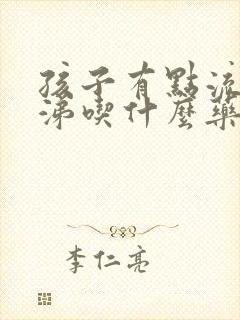 孩子有點流
涕喫什麼藥
李仁亮